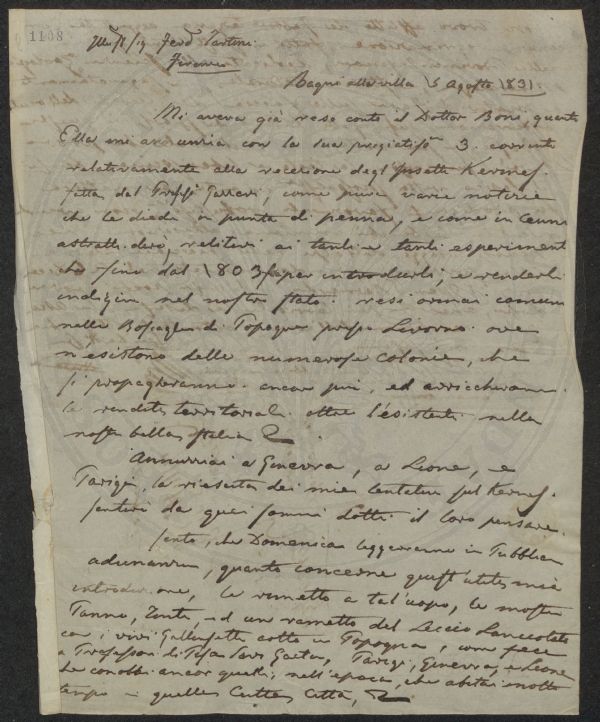 1108
Ferd Tartini
Firenze
Bagni alla villa 5 Agosto 1831.
Mi aveva già reso conto il Dottor Boni, quanto
Ella mi annunzia con la sua 3. corrente
relativamente alla recezione degl'Insetti Kermes
fatta dal Gazzeri, come pure varie notizie
che le diedi in punta di penna, e come in
astratto dirò, relativi ai tanti e tanti esperimenti
che fino dal 1803 per introdurli, e renderli
indigeni nel nostro stato: resi ormai comuni
nelle di Popogna presso Livorno ove
n'esistono delle numerose colonie, che
si propagheranno ancor più, ed arricchiranno
la rendita territoriale oltre l'esistente nella
nostra bella Italia
Annunziai a Ginevra, a Lione, e
Parigi, la riescita dei miei tentativi sul Kermes.
sentirò da quei sommi dotti il loro pensare.
Sento, che Domenica leggeranno in Pubblica
adunanza, quanto concerne quest'utile mia
introduzione, le rimetto a tal'uopo, la mostra
Panno, ed un rametto del Leccio Lanceolato
con i vivi colto in Popogna, come feci
a Professori di Pisa Savi Gaetano, Parigi, Ginevra, e Lione
che conobbi ancor quelli, nell'epoca, che abitai molto
tempo in quelle Città,